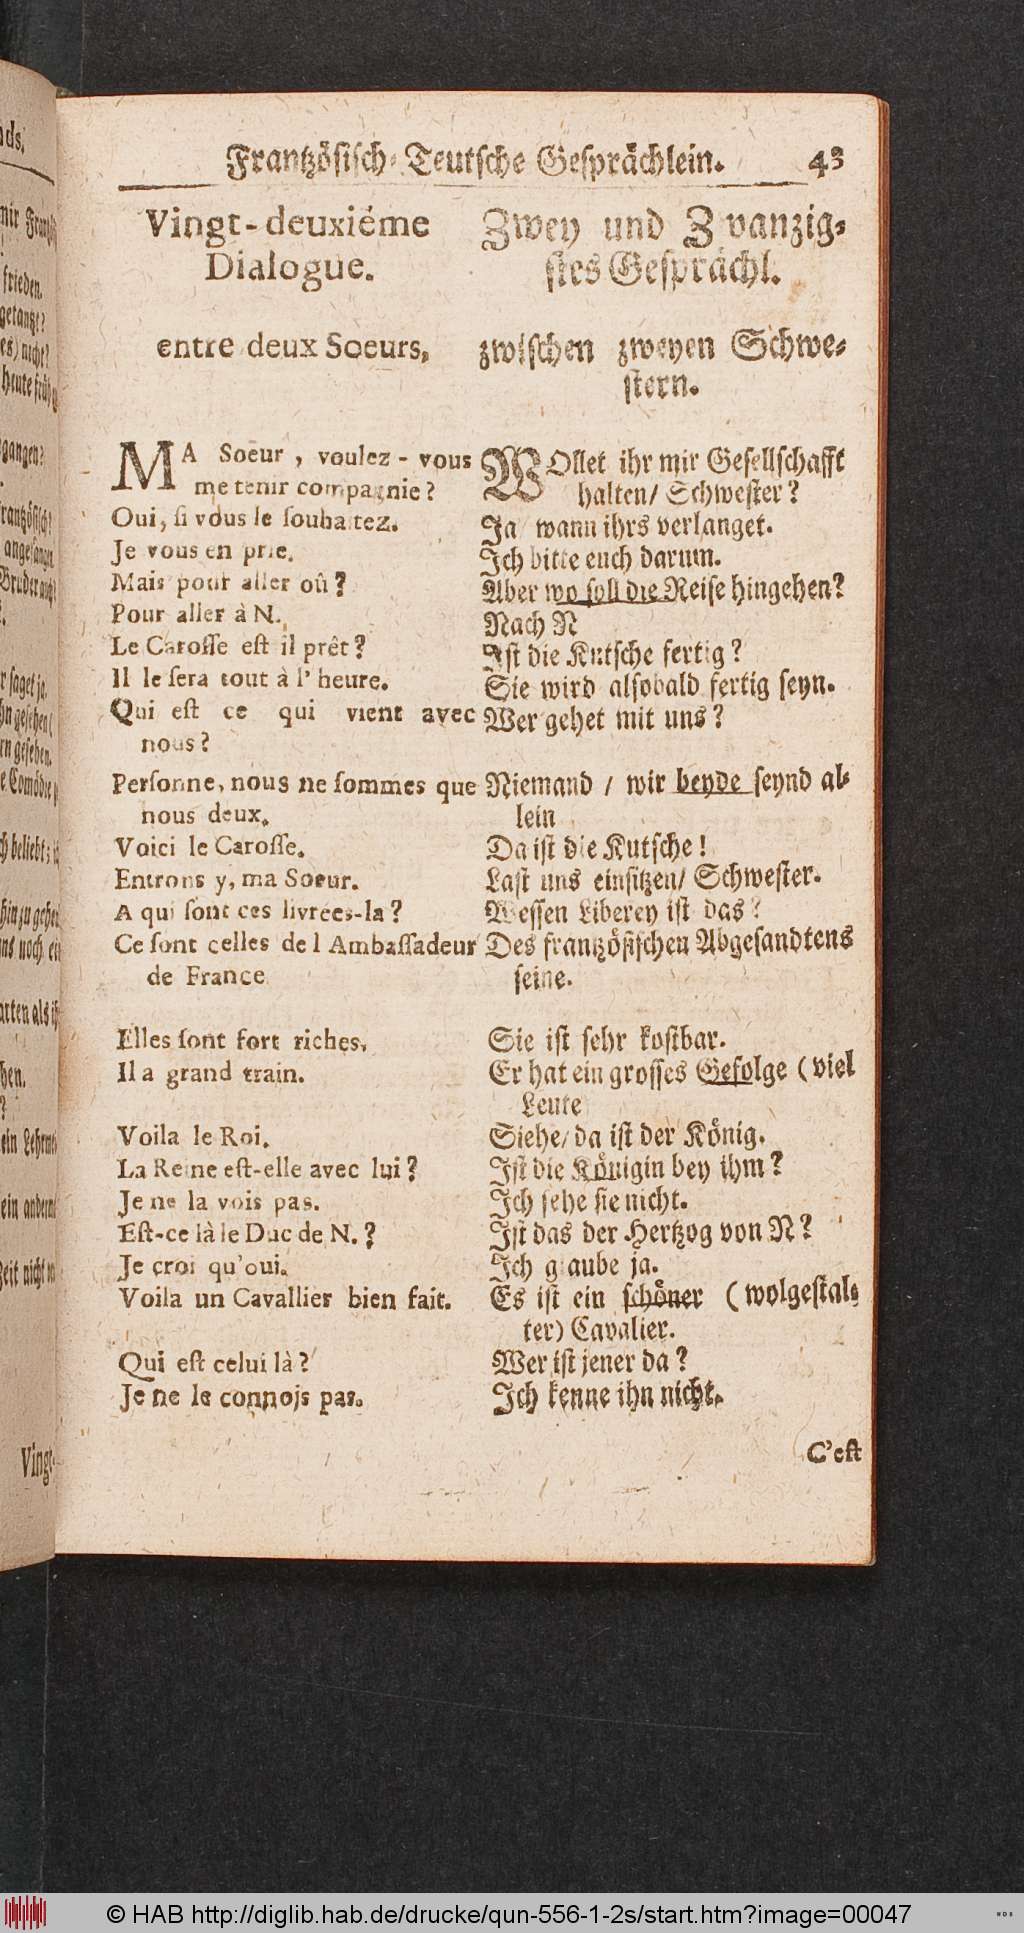 Frantzösisch-Teutsche Gesprächlein. 43
Vingt-deuxiéme
Dialogue.
entre deux Soeurs,
MA Soeur, voulez-vous
me tenir compagnie?
Oui, ſi vous le ſouhaitez.
Je vous en prie.
Mais pour aller oû?
Pour aller à N.
Le Caroſſe eſt il prêt?
Il le ſera tout à l'heure.
Qui eſt ce qui vient avec
nous?
Perſonne, nous ne ſommes que
nous deux.
Voici le Caroſſe.
Entrons y, ma Soeur.
A qui ſont ces livrées-la?
Ce ſont celles de l Ambaſſadeur
de France
Elles ſont fort riches.
Il a grand train.
Voila le Roi.
La Reine eſt-elle avec lui?
Je ne la vois pas.
Eſt-ce là le Duc de N.?
Je croi qu'oui.
Voila un Cavallier bien fait.
Qui eſt celui là?
Je ne le connois pas.
Zwey und Zwanzig-
ſtes Geſprächl.
zwiſchen zweyen Schwe-
ſtern.
WOllet ihr mir Geſellſchafft
halten/ Schweſter?
Ja wann ihrs verlanget.
Ich bitte euch darum.
Aber wo ſoll die Reiſe hingehen?
Nach N
Iſt die Kutſche fertig?
Sie wird alſobald fertig ſeyn.
Wer gehet mit uns?
Niemand / wir beyde ſeynd al-
lein
Da iſt die Kutſche!
Laſt uns einſitzen/ Schweſter.
Weſſen Liberey iſt das?
Des frantzöſiſchen Abgeſandtens
ſeine.
Sie iſt ſehr koſtbar.
Er hat ein groſſes Gefolge (viel
Leute
Siehe/ da iſt der König.
Iſt die Königin bey ihm?
Ich ſehe ſie nicht.
Iſt das der Hertzog von N?
Ich glaube ja.
Es iſt ein ſchöner (wolgeſtal-
ter) Cavalier.
Wer iſt jener da?
Ich kenne ihn nicht.
C'eſt
© HAB http://diglib.hab.de/drucke/qun-556-1-2s/start.htm?image=00047